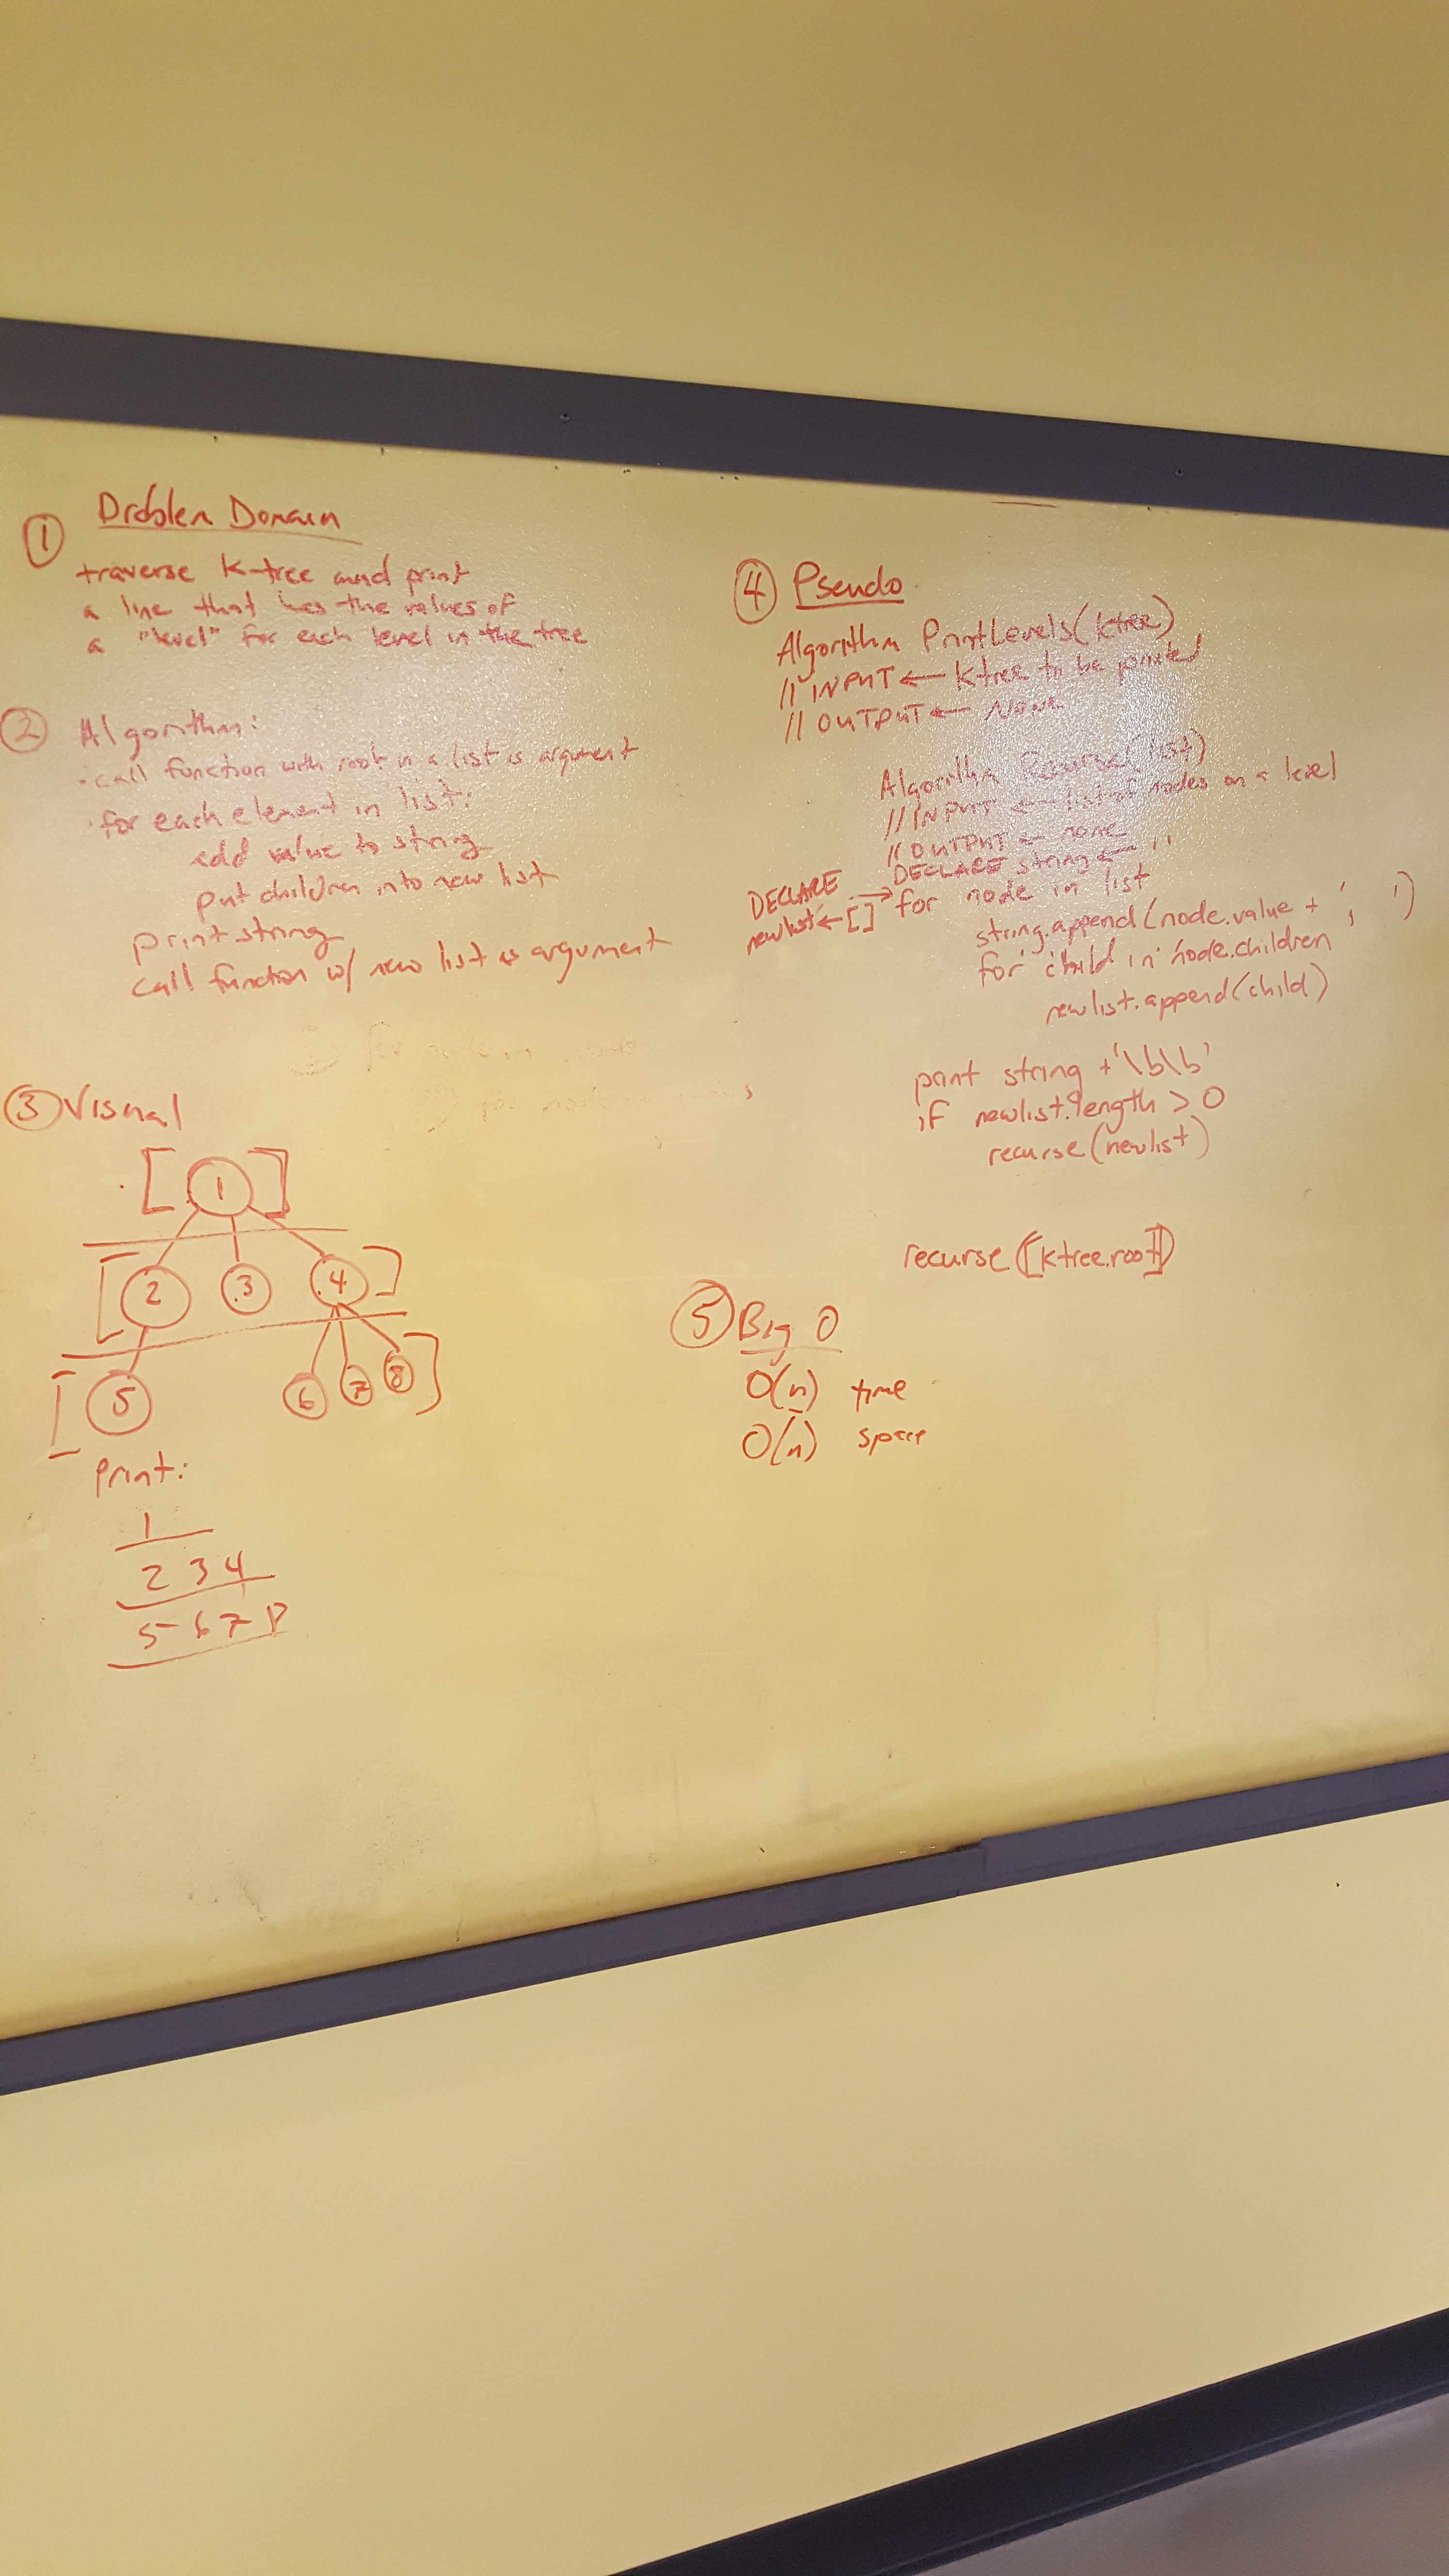 ① Problem Domain
traverse k-tree and print
a line that has the values of
a "level" for each level in the tree
② Algorithm:
· call function with root in a list as argument
· for each element in list:
add value to string
put children into new list
print string
call function w/ new list as argument
③ Visual
[ 1 ]
[ 2 3 4 ]
[ 5 6 7 8 ]
Print:
1
2 3 4
5 6 7 8
④ Pseudo
Algorithm PrintLevels(ktree)
// INPUT ← ktree to be printed
// OUTPUT ← NONE
Algorithm Recurse(list)
// INPUT ← list of nodes on a level
// OUTPUT ← none
DECLARE string ← ''
DECLARE
newlist ← []
for node in list
string.append(node.value + ', ')
for child in node.children
newlist.append(child)
print string + '\b\b'
if newlist.length > 0
recurse(newlist)
recurse([ktree.root])
⑤ Big O
O(n) time
O(n) space